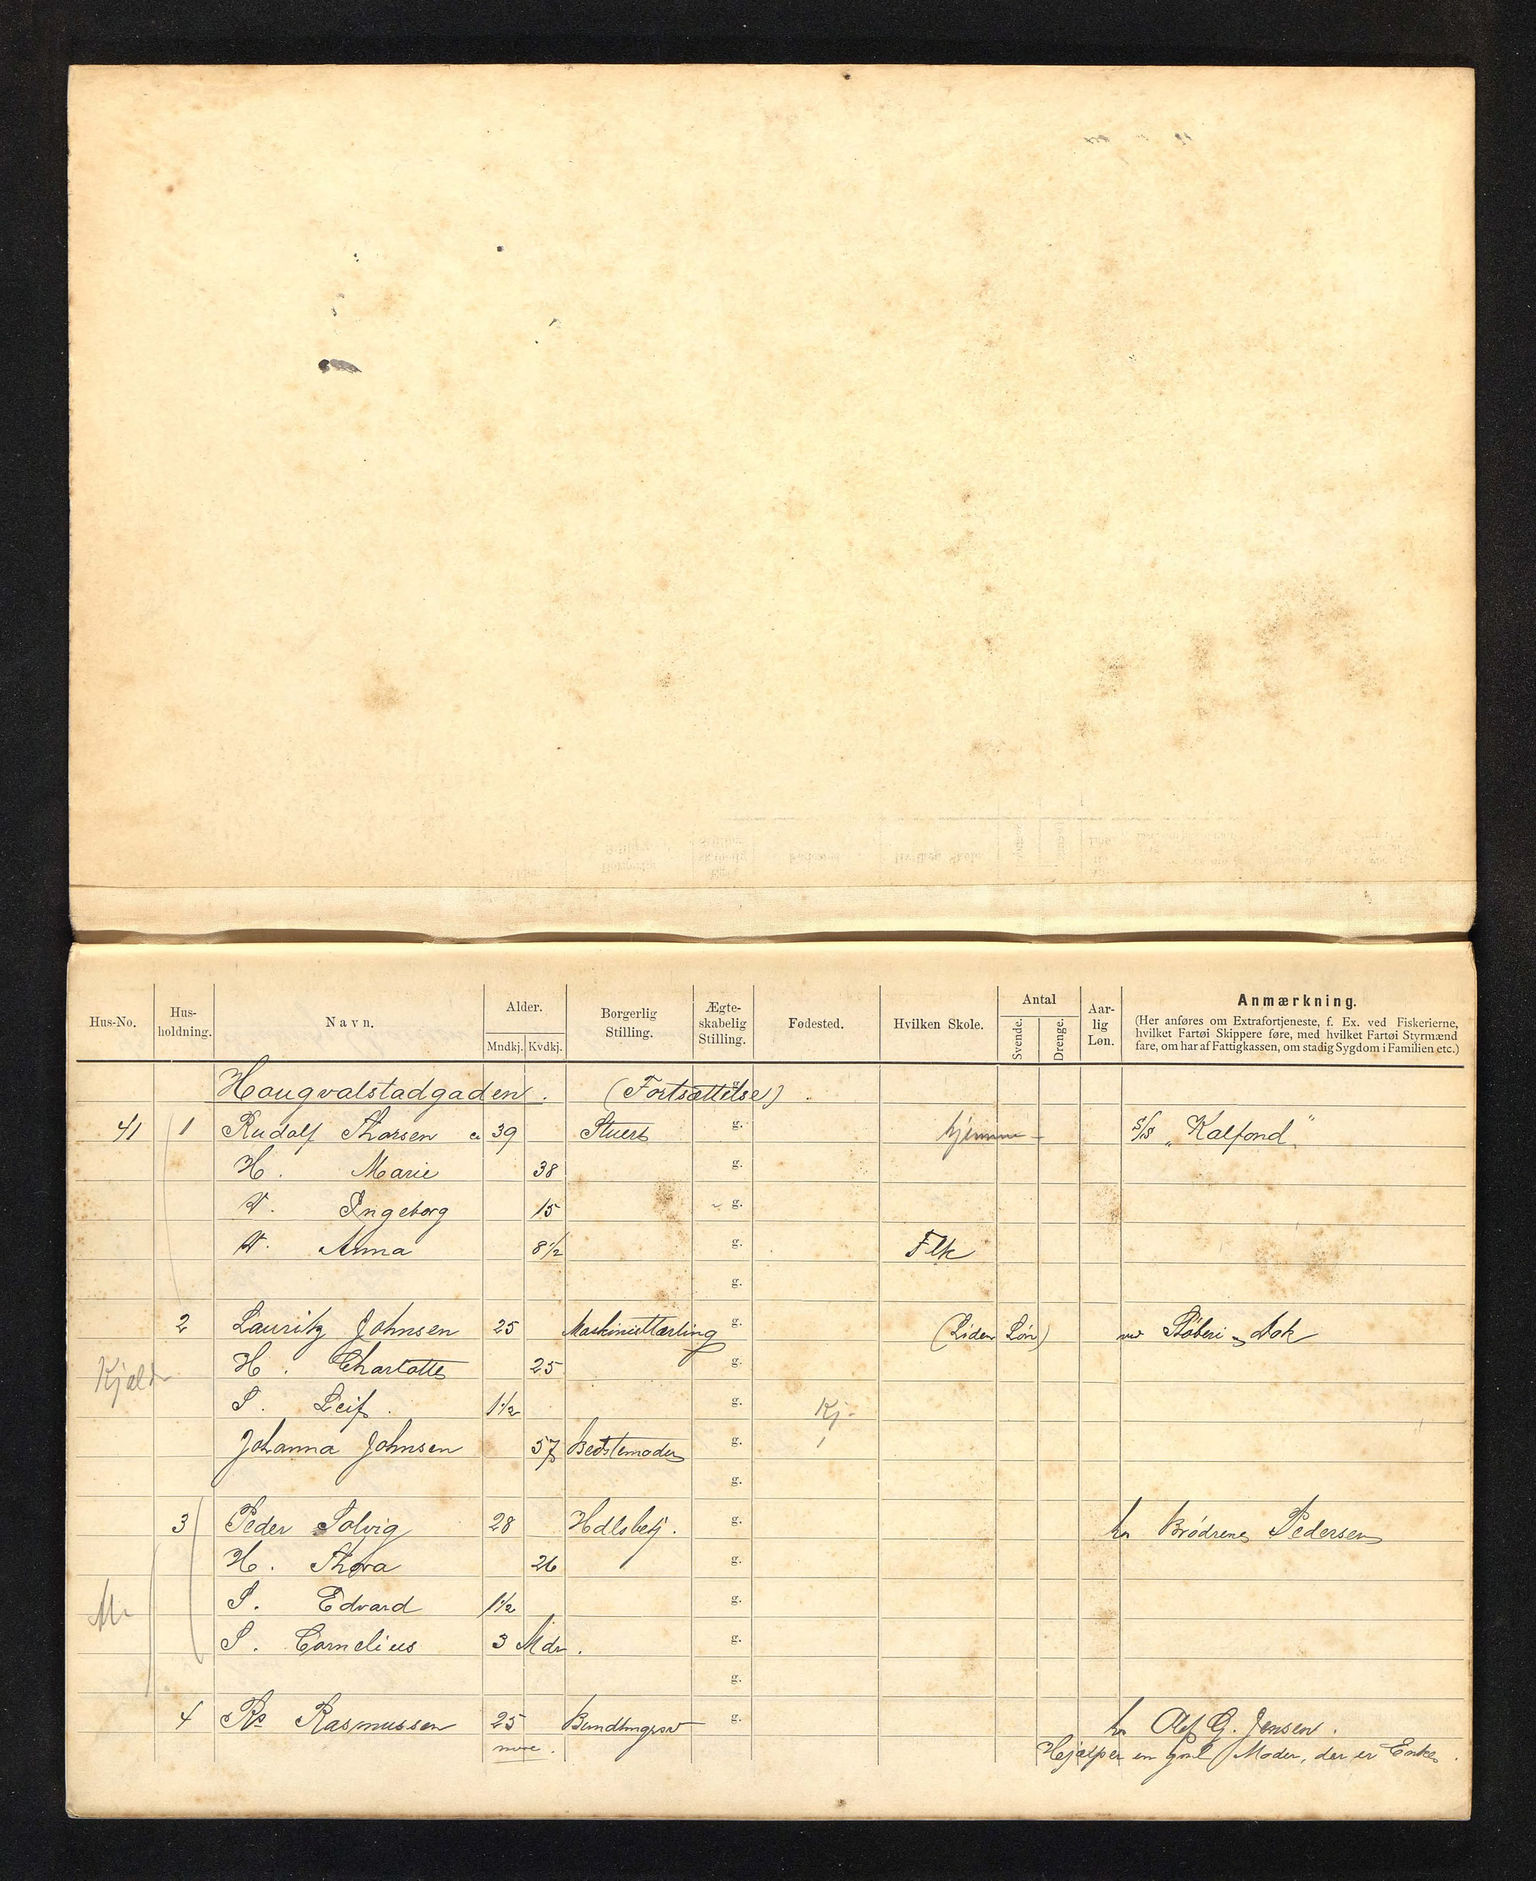 Hus-No. Hus-holdning. Navn. Alder. Mndkj. Kvdkj. Borgerlig Stilling. Ægte-skabelig Stilling. Fødested. Hvilken Skole. Antal Svende. Drenge. Aar-lig Løn. Anmærkning.
(Her anføres om Extrafortjeneste, f. Ex. ved Fiskerierne,
hvilket Fartøi Skippere føre, med hvilket Fartøi Styrmænd
fare, om har af Fattigkassen, om stadig Sygdom i Familien etc.)
Hougvalstadgaden. (Fortsættelse) g.
41 1 Rudolf Thorsen 39 Stuert g. hjemme S/S "Kalfond"
H. Marie 38 g.
D. Ingeborg 15 g.
D. Anna 8 1/2 g. Flk
g.
2 Lauritz Johnsen 25 Maskinistlærling g. (Liden Løn) ved Støberi & Dok
H. Charlotte 25 g.
Kjeld
S. Leif. 1 1/2 g. Kj.
Johanna Johnsen 57 Bedstemoder g.
g.
3 Peder Solvig 28 Hdlsbetj. g. hos Brødrene Pedersen
H. Thora 26 g.
M.
S. Edvard 1 1/2 g.
S. Cornelius 3 Mdr. g.
g.
4 Rs Rasmussen 25 g. hos G. Jensen.
Hjælper en gml Moder, der er Enke.